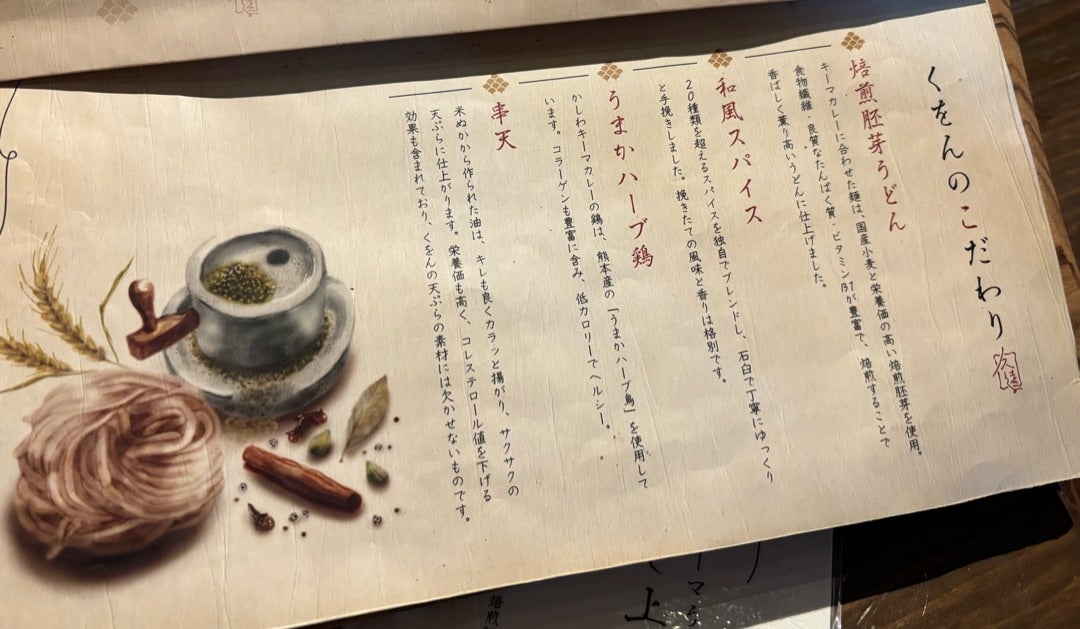 くをんのこだわり
焙煎胚芽うどん
キーマカレーに合わせた麺は、国産小麦と栄養価の高い焙煎胚芽を使用。
食物繊維・良質なたんぱく質・ビタミンB1が豊富で、焙煎することで
香ばしく薫り高いうどんに仕上げました。
和風スパイス
20種類を超えるスパイスを独自でブレンドし、石臼で丁寧にゆっくり
と手挽きしました。挽きたての風味と香りは格別です。
うまかハーブ鶏
かしわキーマカレーの鶏は、熊本産の「うまかハーブ鳥」を使用して
います。コラーゲンも豊富に含み、低カロリーでヘルシー。
串天
米ぬかから作られた油は、キレも良くカラッと揚がり、サクサクの
天ぷらに仕上がります。栄養価も高く、コレステロール値を下げる
効果も含まれており、くをんの天ぷらの素材には欠かせないものです。
ーマ
上
焙煎